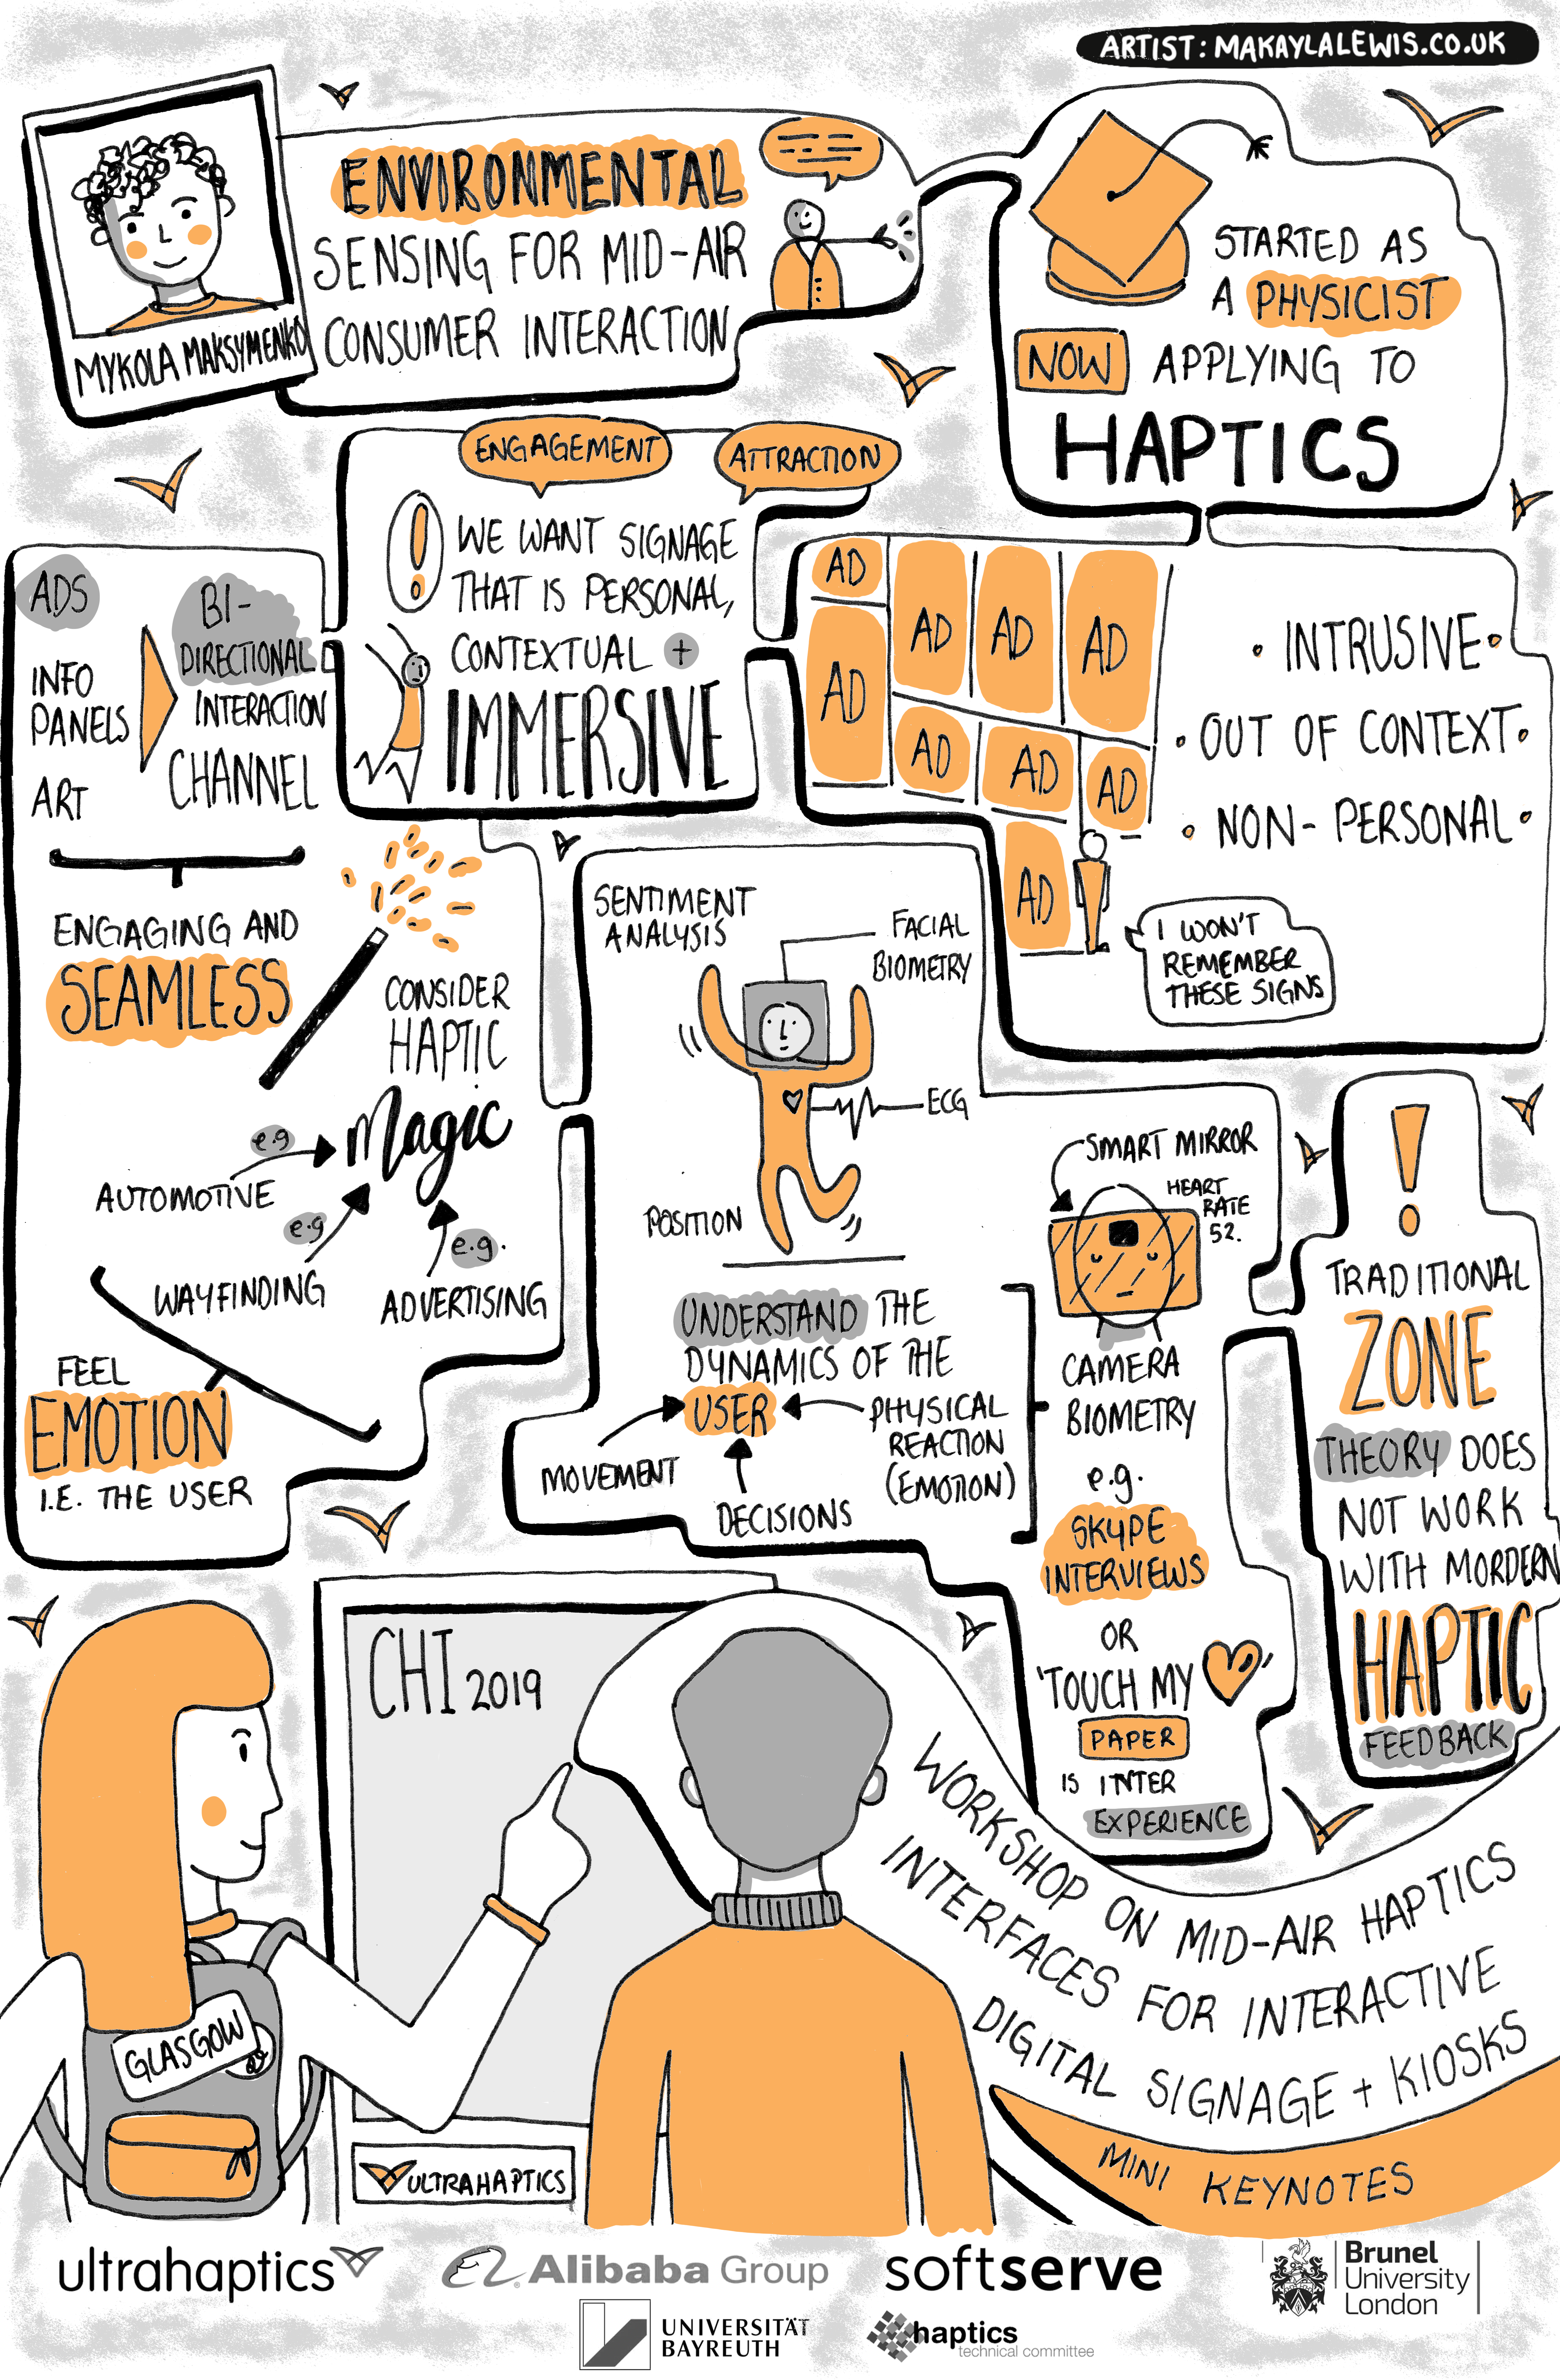 ARTIST: MAKAYLALEWIS.CO.UK
MYKOLA MAKSYMENKO
ENVIRONMENTAL
SENSING FOR MID-AIR
CONSUMER INTERACTION
STARTED AS
A PHYSICIST
NOW APPLYING TO
HAPTICS
AD
AD
AD
AD
AD
AD
AD
AD
AD
• INTRUSIVE •
• OUT OF CONTEXT •
• NON-PERSONAL •
I WON'T
REMEMBER
THESE SIGNS
ENGAGEMENT
ATTRACTION
!
WE WANT SIGNAGE
THAT IS PERSONAL,
CONTEXTUAL +
IMMERSIVE
ADS
INFO
PANELS
ART
BI-
DIRECTIONAL
INTERACTION
CHANNEL
ENGAGING AND
SEAMLESS
CONSIDER
HAPTIC
Magic
e.g
AUTOMOTIVE
e.g
WAYFINDING
e.g.
ADVERTISING
FEEL
EMOTION
I.E. THE USER
SENTIMENT
ANALYSIS
FACIAL
BIOMETRY
ECG
POSITION
UNDERSTAND THE
DYNAMICS OF THE
USER
MOVEMENT
DECISIONS
PHYSICAL
REACTION
(EMOTION)
SMART MIRROR
HEART
RATE
52.
CAMERA
BIOMETRY
e.g.
SKYPE
INTERVIEWS
OR
'TOUCH MY '
PAPER
IS INTER
EXPERIENCE
!
TRADITIONAL
ZONE
THEORY DOES
NOT WORK
WITH MORDERN
HAPTIC
FEEDBACK
CHI 2019
GLASGOW
ULTRAHAPTICS
WORKSHOP ON MID-AIR HAPTICS
INTERFACES FOR INTERACTIVE
DIGITAL SIGNAGE + KIOSKS
MINI KEYNOTES
ultrahaptics
Alibaba Group
softserve
Brunel
University
London
UNIVERSITÄT
BAYREUTH
haptics
technical committee